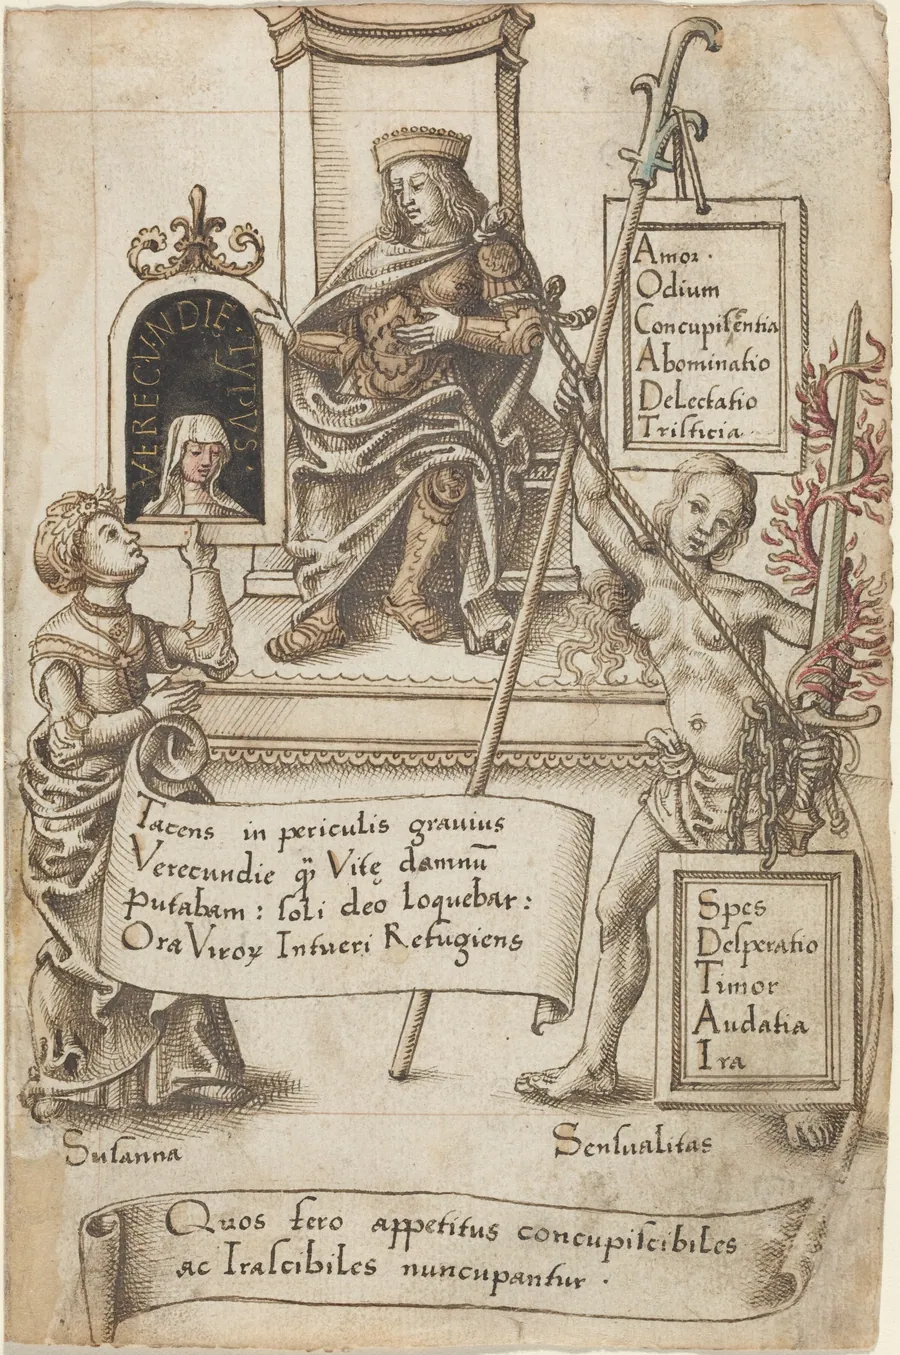 VERECUNDIE · TYPVS ·
Amor ·
Odium
Concupiſentia
Abominatio
DeLectatio
Triſticia
Tacens in periculis grauius
Verecundie q̄ Vitę damnū
Putabam : ſoli deo loquebar :
Ora Viroꝝ Intueri Refugiens
Spes
Deſperatio
Timor
Audatia
Ira
Suſanna
Senſualitas
Quos fero appetitus concupiſcibiles
ac Iraſcibiles nuncupantur ·